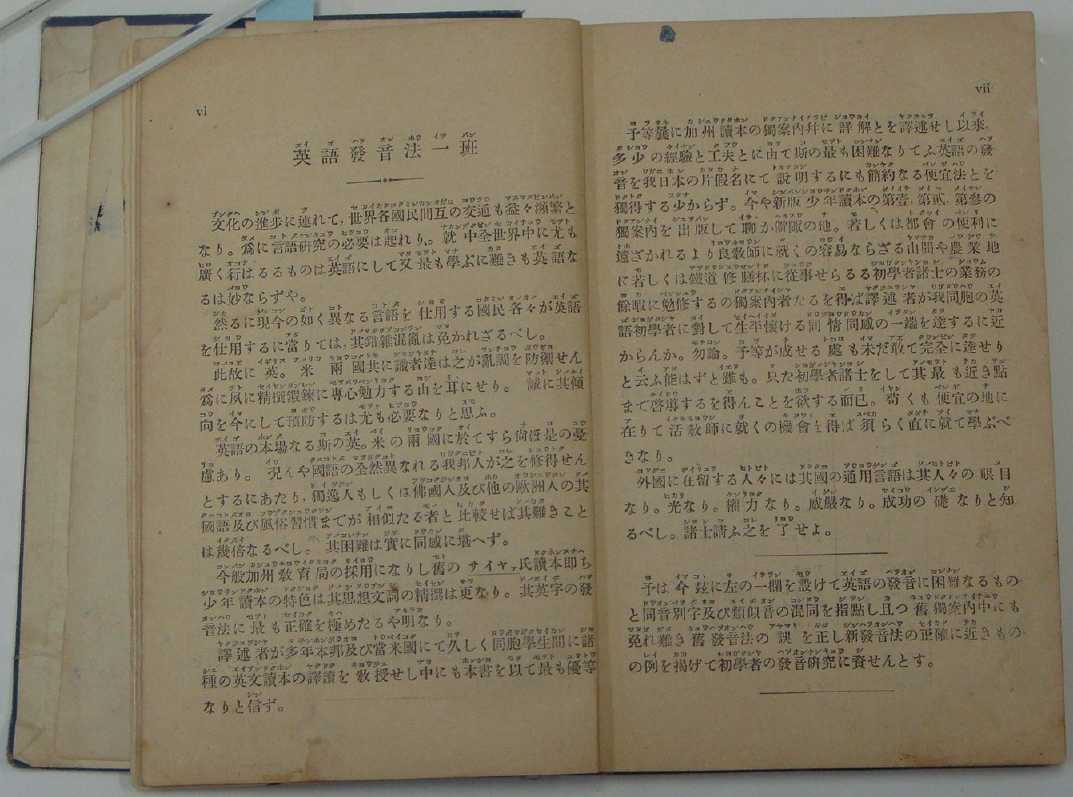 vi
英語發音法一班
文化の進步に連れて，世界各國民間互の交通も益々頻繁と
なり。爲に言語研究の必要は起れり。就中全世界中に尤も
廣く行はるるものは英語にして又最も學ぶに難きも英語な
るは妙ならずや。
然るに現今の如く異なる言語を仕用する國民各々が英語
を仕用するに當りては，其錯雜混亂は免かれざるべし。
此故に英。米兩國共に識者達は之が亂調を防潮せん
爲に夙に精撰鍛鍊に專心勉力する由を耳にせり。誠に其傾
向を今にして預防するは尤も必要なりと思ふ。
英語の本場なる斯の英。米の兩國に於てすら尙ほ是の憂
慮あり。况んや國語の全然異なれる我邦人が之を修得せん
とするにあたり，獨逸人もしくは佛國人及び他の歐洲人の其
國語及び風俗習慣までが相似たる者と比較せば其難きこと
は幾倍なるべし。其困難は實に同感に堪へず。
今般加州敎育局の採用になりし舊のサイヤァ氏讀本卽ち
少年讀本の特色は其思想文詞の精撰は更なり。其英字の發
音法に最も正確を極めたるや明なり。
譯述者が多年本邦及び當米國にて久しく同胞學生間に諸
種の英文讀本の譯讀を敎授せし中にも本書を以て最も優等
なりと信ず。
vii
予等曩に加州讀本の獨案內幷に詳解とを譯述せし以來，
多少の經驗と工夫とに由て斯の最も困難なりてふ英語の發
音を我日本の片假名にて說明するにも簡約なる便宜法とを
獨得する少からず。今や新版少年讀本の第壹，第貳，第叁の
獨案內を出版して聊か僻陬の地。若しくは都會の便利に
遠ざかれるより良敎師に就くの容易ならざる山間や農業地
に若しくは鐵道修膳杯に從事せらるる初學者諸士の業務の
餘暇に勉修するの獨案內者たるを得ば譯述者が我同胞の英
語初學者に對して生平懷ける同情同感の一端を達するに近
からんか。勿論。予等が成せる處も未だ敢て完全に達せり
と云ふ能はずと雖も。只だ初學者諸士をして其最も近き點
まで啓導するを得んことを欲する而已。苟くも便宜の地に
在りて活敎師に就くの機會を得ば須らく直に就て學ぶべ
きなり。
外國に在留する人々には其國の通用言語は其人々の眼目
なり。光なり。權力なり。威嚴なり。成功の礎なりと知
るべし。諸士請ふ之を了せよ。
予は今玆に左の一欄を設けて英語の發音に困厝なるもの
と同音別字及び類似音の混同を指點し且つ舊獨案內中にも
免れ難き舊發音法の誤を正し新發音法の正確に近きもの
の例を揭げて初學者の發音硏究に資せんとす。